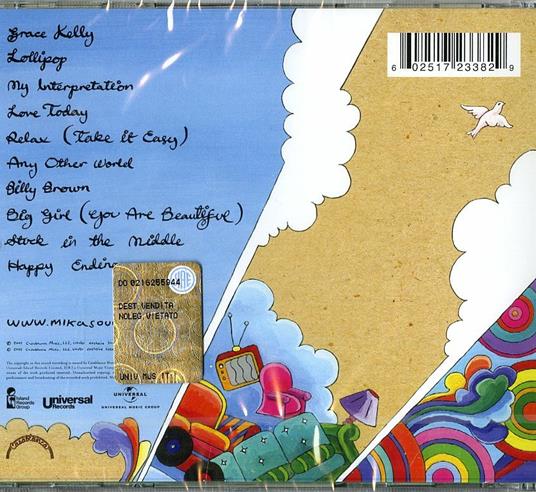 Grace Kelly
Lollipop
My Interpretation
Love Today
Relax (Take It Easy)
Any Other World
Billy Brown
Big Girl (You Are Beautiful)
Stuck in the Middle
Happy Ending
www.mikasou
6 02517 23382 9
DO 0216255944
SIAE
DEST.VENDITA
NOLEG.VIETATO
UNIV MUS IT
Island
Records
Group
Universal
Records
UNIVERSAL
UNIVERSAL MUSIC GROUP
CASABLANCA